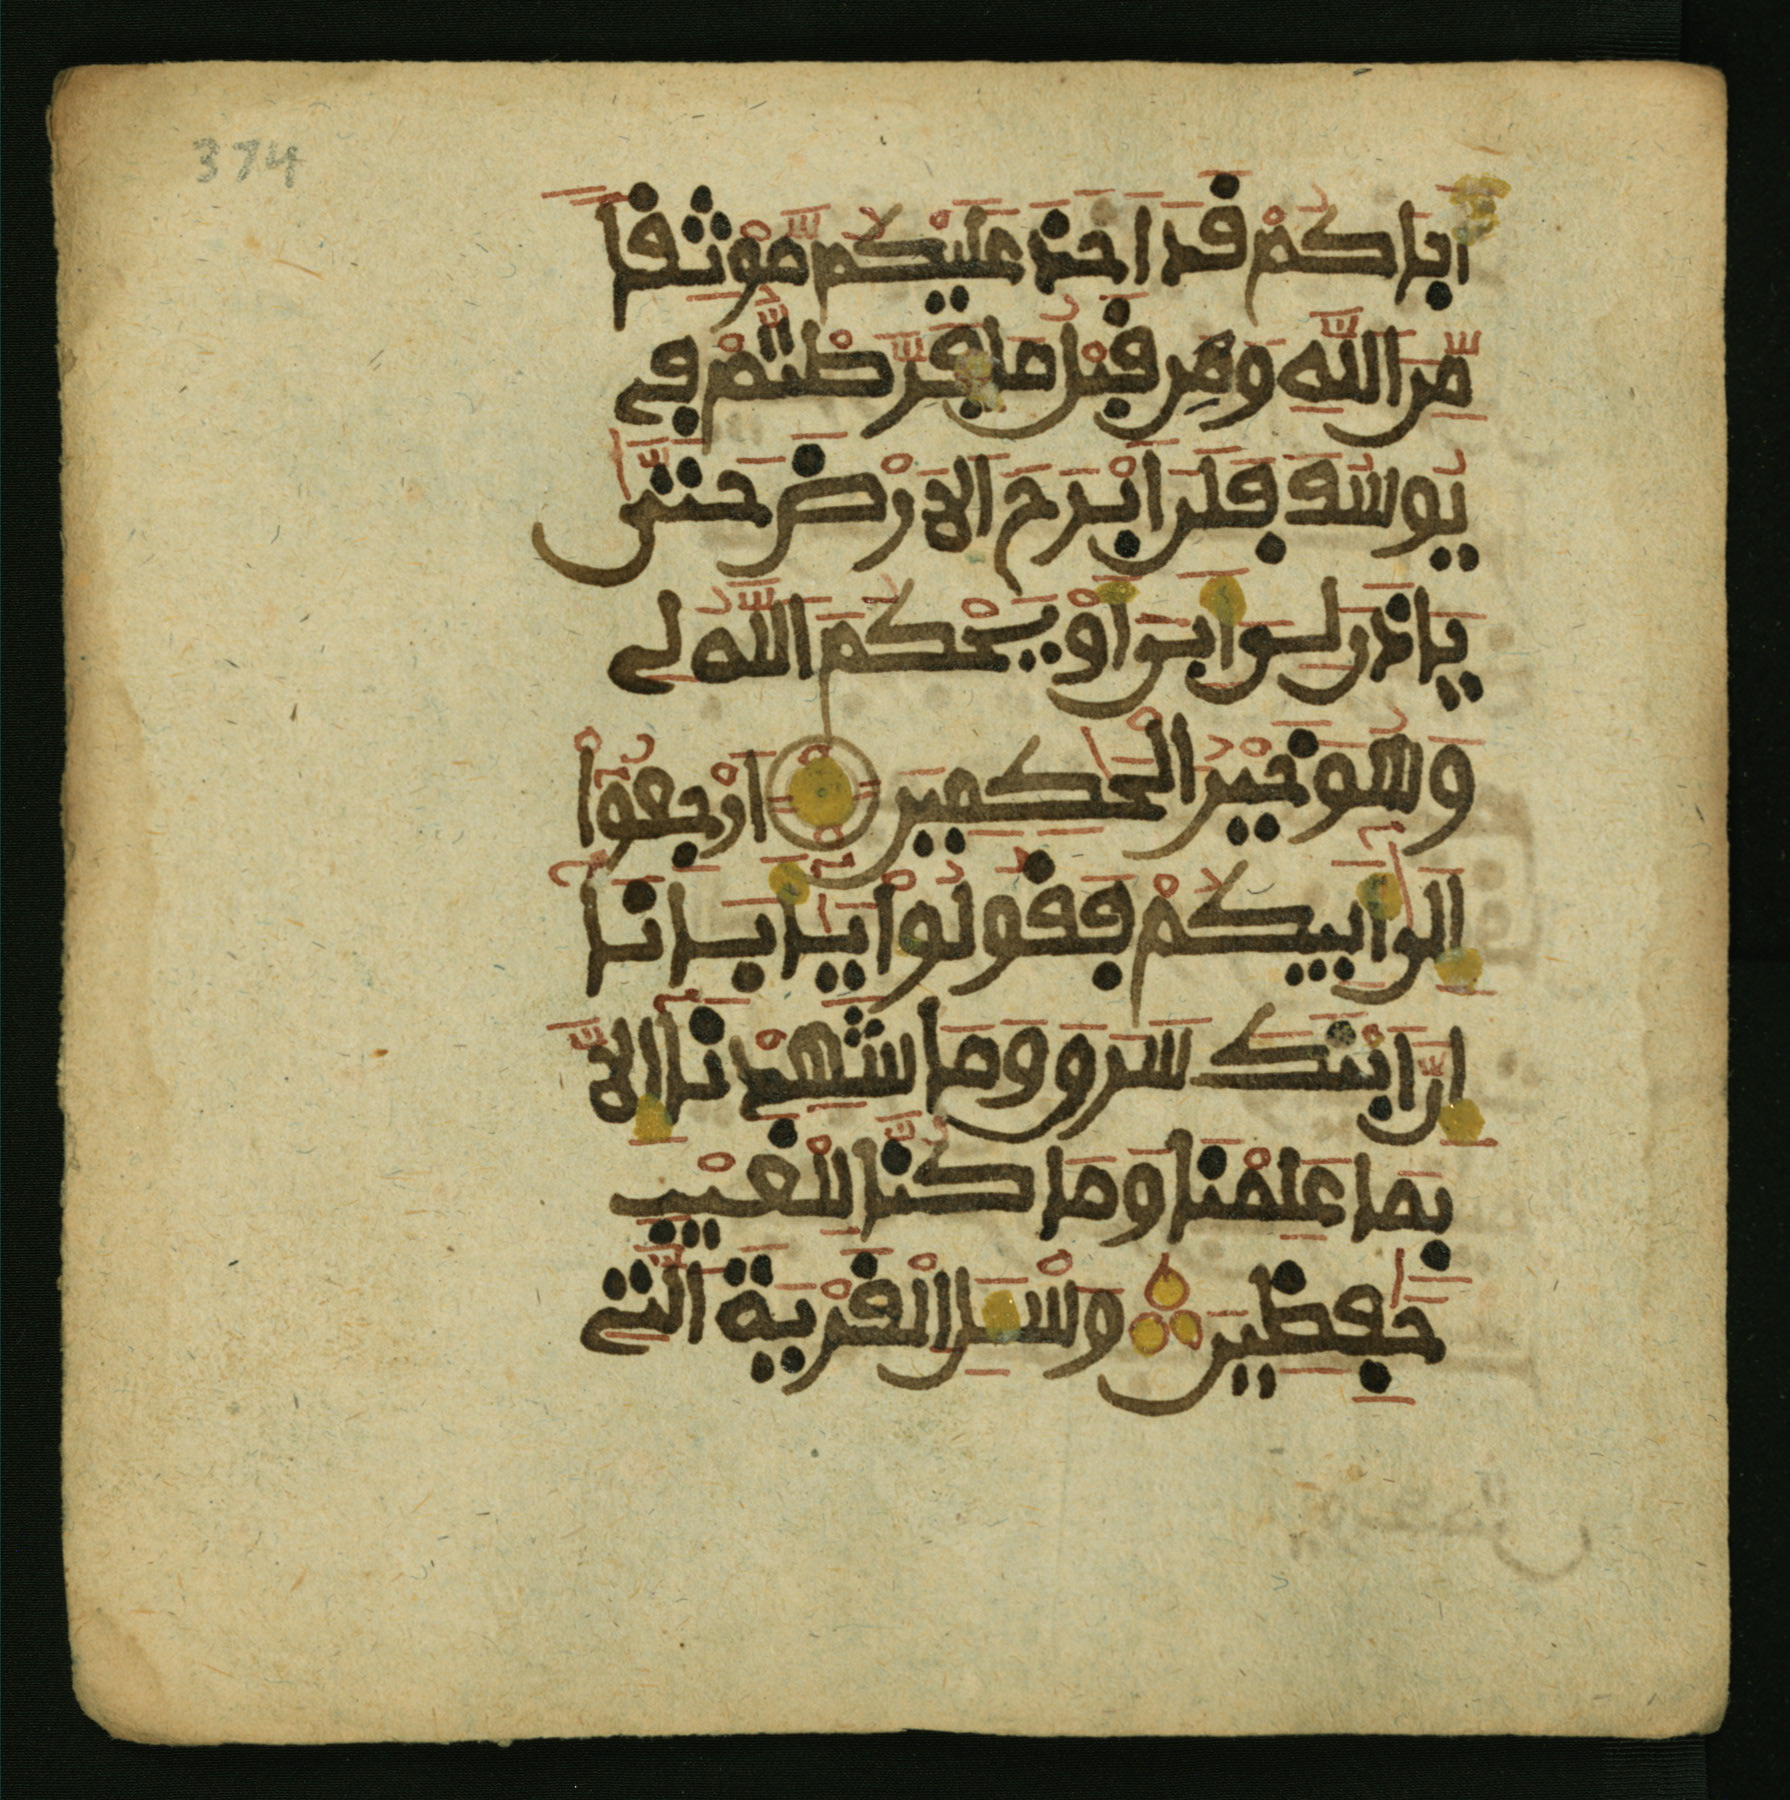 374
أباكم قد أخذ عليكم موثقا
من الله ومن قبل ما فرطتم في
يوسف فلن أبرح الارض حتى
ياذن لي أبي أو يحكم الله لي
وهو خير الحكمين ارجعوا
إلى أبيكم فقولوا يأبانا
إن ابنك سرق وما شهدنا إلا
بما علمنا وما كنا للغيب
حفظين وسئل القرية التي